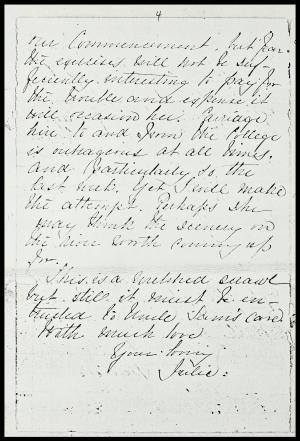 4
our Commencement, but fear
the exercises will not be suf-
ficiently interesting to pay for
the trouble and expense it
will occasion her. Carriage
hire to and from the College
is outrageous at all times,
and particularly so the
last week. Yet I will make
the attempt. Perhaps she
may think the scenery on
the line worth coming up
for.
This is a wretched scrawl
but still it must be en-
trusted to Uncle Sam's care.
With much love
Your loving
Julie.